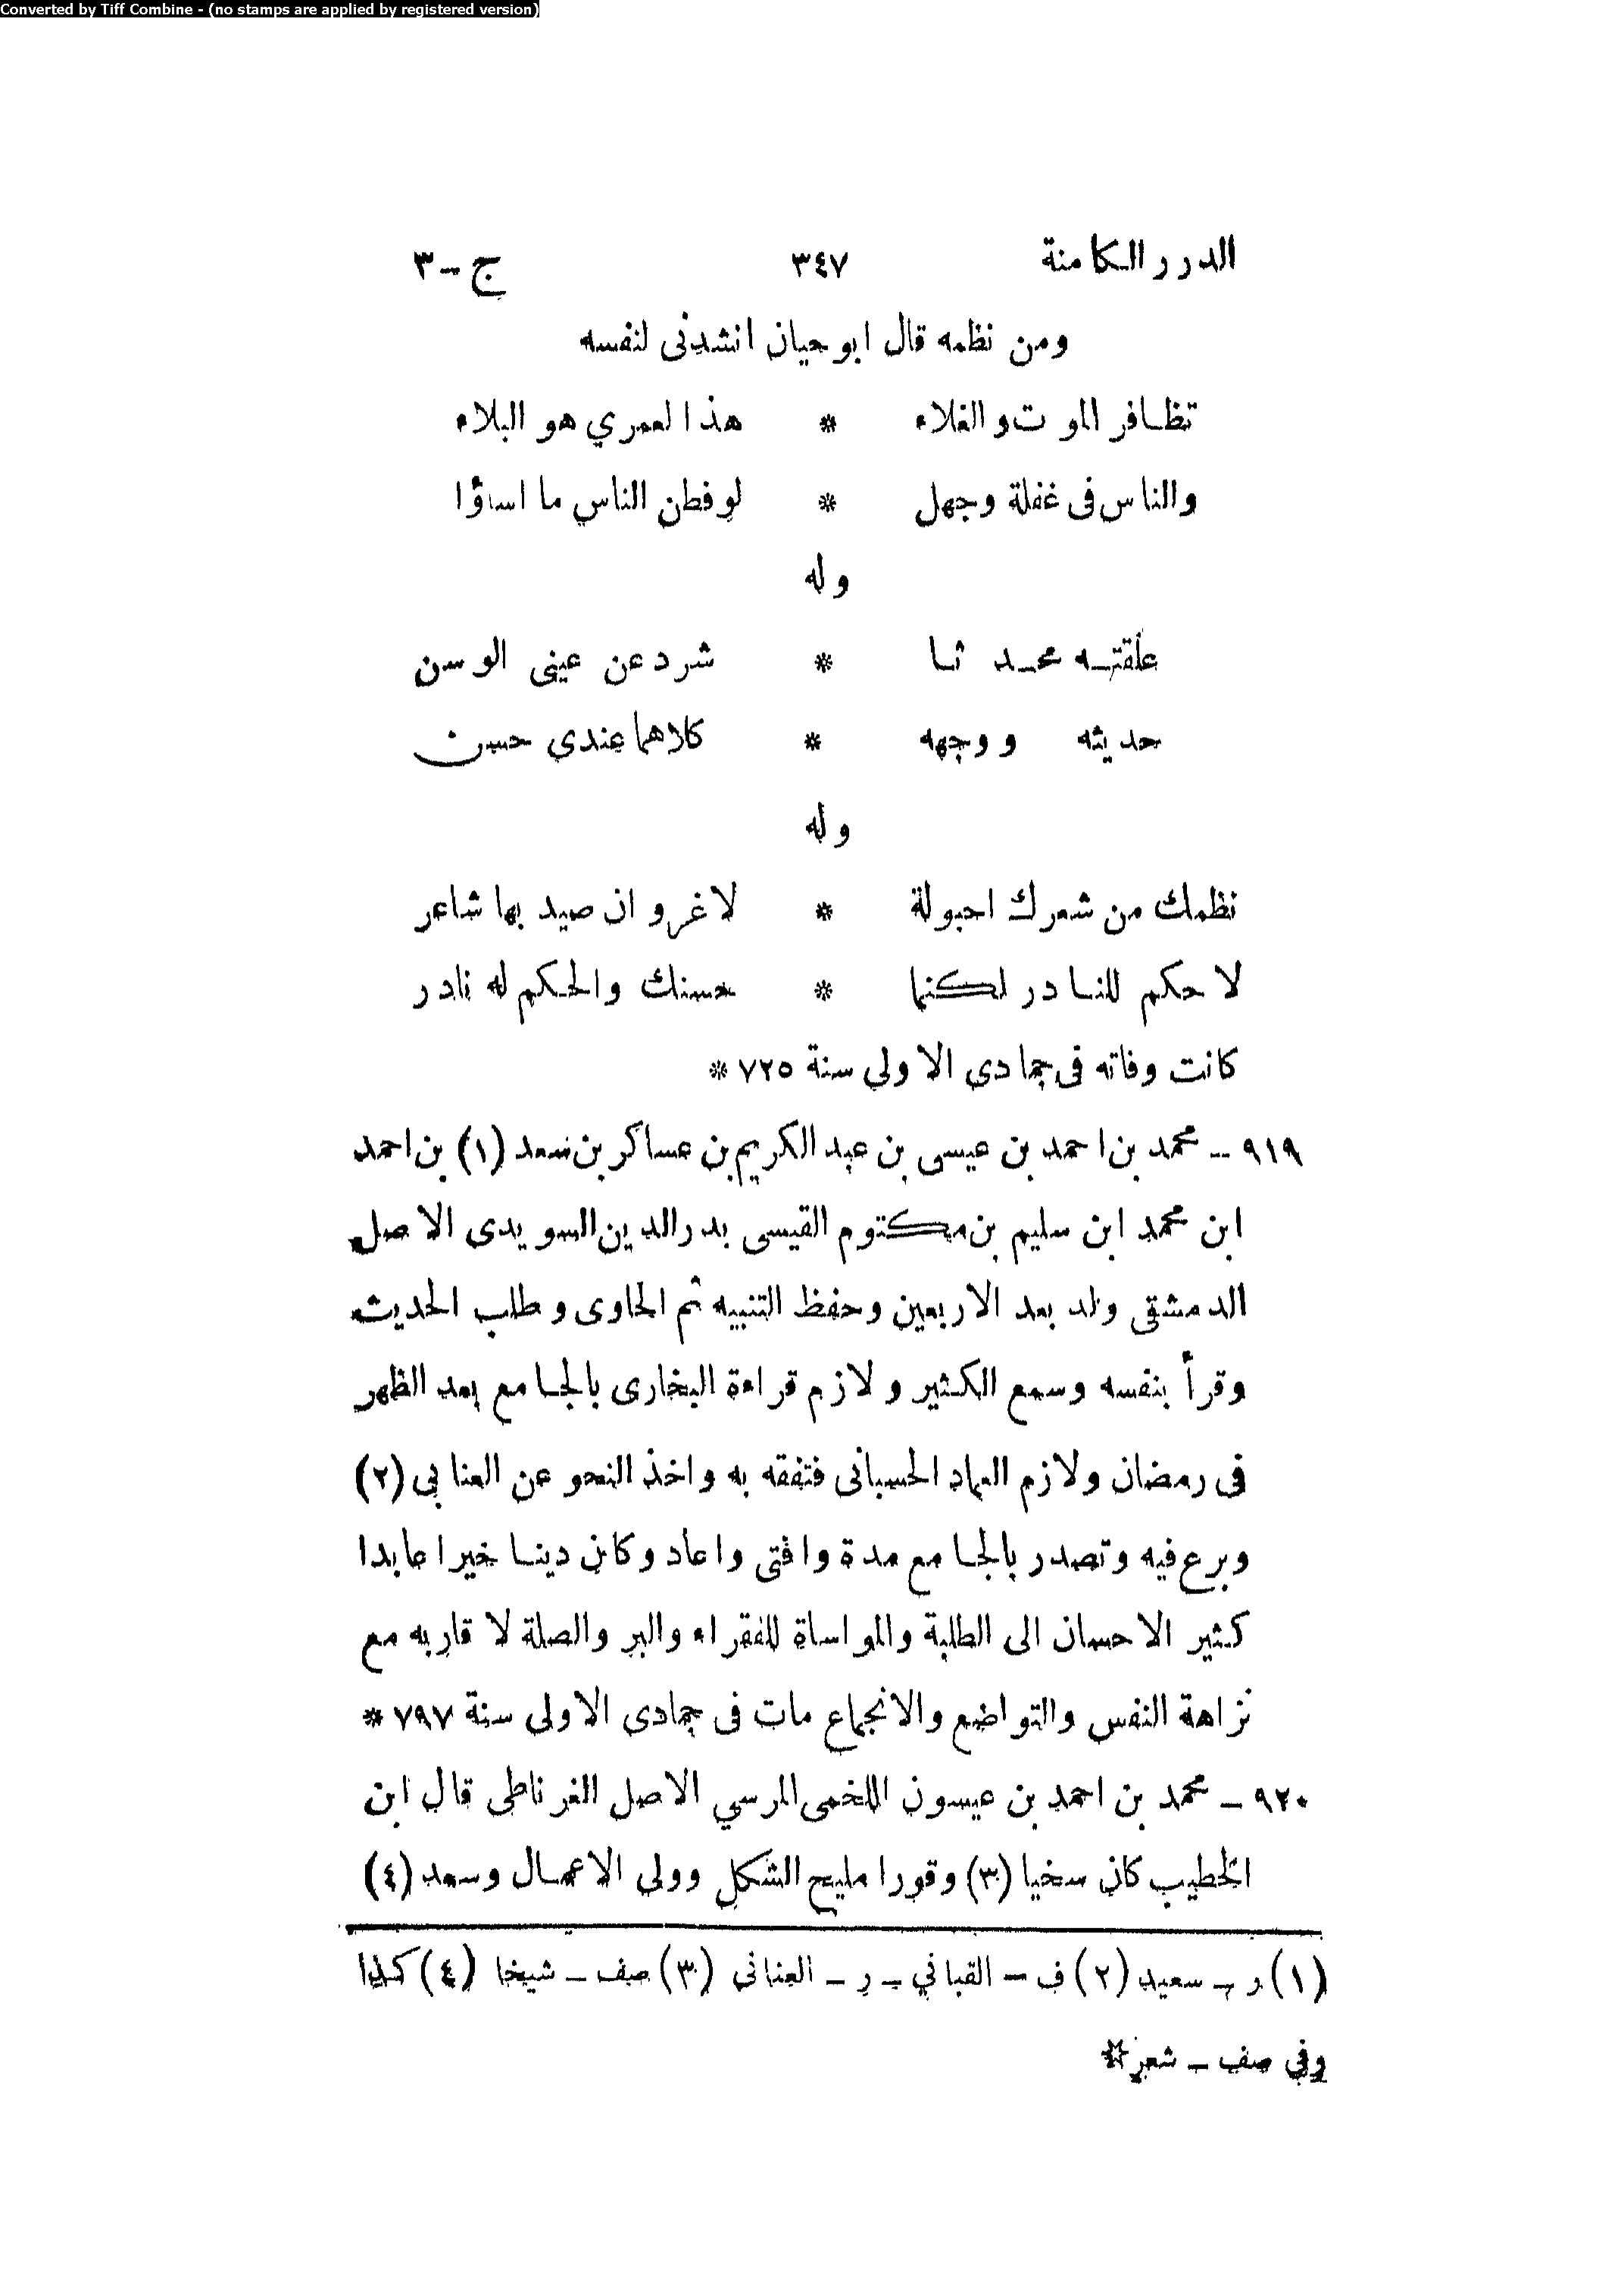 Converted by Tiff Combine - (no stamps are applied by registered version)
الدرر الكامنة ٣٤٧ ج - ٣
ومن نظمه قال ابو حيان انشدنى لنفسه
تظافر الموت والغلاء * هذا لعمري هو البلاء
والناس فى غفلة وجهل * لو فطن الناس ما اساؤا
وله
علقته محدثا * شرد عن عينى الوسن
حديثه ووجهه * كلاهما عندى حسن
وله
نظمك من شعرك احبولة * لا غرو ان صيد بها شاعر
لا حكم للنادر لكنما * حسنك والحكم له نادر
كانت وفاته فى جمادى الاولى سنة ٧٢٥ *
٩١٩ - محمد بن احمد بن عيسى بن عبد الكريم بن عساكر بن سعد (١) بن احمد
ابن محمد ابن سليم بن مكتوم القيسى بدر الدين السويدى الاصل
الدمشقى ولد بعد الاربعين وحفظ التنبيه ثم الحاوى وطلب الحديث
وقرأ بنفسه وسمع الكثير ولازم قراءة البخارى بالجامع بعد الظهر
فى رمضان ولازم العماد الحسبانى فتفقه به واخذ النحو عن العنابى (٢)
وبرع فيه وتصدر بالجامع مدة وافتى واعاد وكان دينا خيرا عابدا
كثير الاحسان الى الطلبة والمواساة للفقراء والبر والصلة لاقاربه مع
نزاهة النفس والتواضع والانجماع مات فى جمادى الاولى سنة ٧٩٧ *
٩٢٠ - محمد بن احمد بن عيسون اللخمى المرسي الاصل الغرناطى قال ابن
الخطيب كان سخيا (٣) وقورا مليح الشكل وولى الاعمال وسعد (٤)
(١) ر - سعيد (٢) ف - القباني - ر - العنانى (٣) صف - شيخا (٤) كذا
وفي صف - شعر *